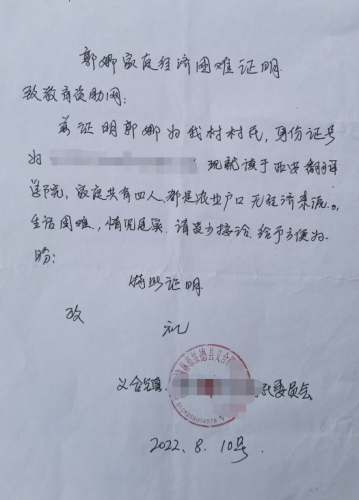 郭娜家庭经济困难证明
致教育资助网：
兹证明郭娜为我村村民，身份证号
为 现就读于西安翻译
学院，家庭共有四人，都是农业户口 无经济来源。
生活困难，情况属实，请贵方接洽 给予方便为
盼：
特此证明
致 礼
义合镇 委员会
2022.8.10号